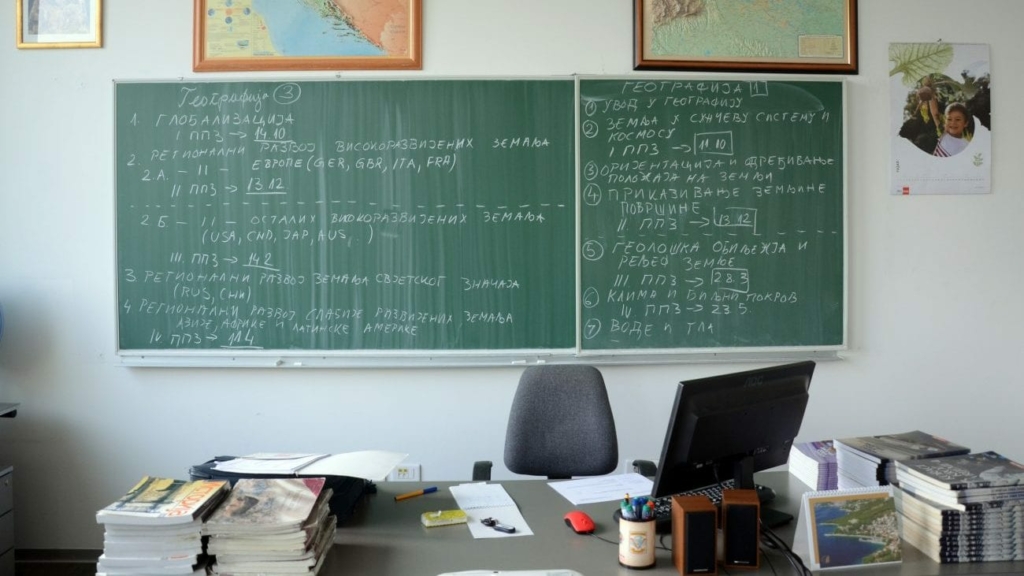 Географија 3
1. ГЛОБАЛИЗАЦИЈА
I ППЗ → 14.10
2. РЕГИОНАЛНИ РАЗВОЈ ВИСОКОРАЗВИЈЕНИХ ЗЕМАЉА
ЕВРОПЕ (GER, GBR, ITA, FRA)
2.А. – II –
II ППЗ → 13.12
2.Б – II – ОСТАЛИХ ВИСОКОРАЗВИЈЕНИХ ЗЕМАЉА
(USA, CND, JAP, AUS, . . )
III ППЗ → 14.2
3. РЕГИОНАЛНИ РАЗВОЈ ЗЕМАЉА СВЈЕТСКОГ ЗНАЧАЈА
(RUS, CHN)
4. РЕГИОНАЛНИ РАЗВОЈ СЛАБИЈЕ РАЗВИЈЕНИХ ЗЕМАЉА
АЗИЈЕ, АФРИКЕ И ЛАТИНСКЕ АМЕРИКЕ
IV ППЗ → 11.4
ГЕОГРАФИЈА 1
1 УВОД У ГЕОГРАФИЈУ
2 ЗЕМЉА У СУНЧЕВУ СИСТЕМУ И
КОСМОСУ
I ППЗ → 11.10
3 ОРИЈЕНТАЦИЈА И ОДРЕЂИВАЊЕ
ПОЛОЖАЈА НА ЗЕМЉИ
4 ПРИКАЗИВАЊЕ ЗЕМЉИНЕ
ПОВРШИНЕ
II ППЗ → 13.12
5 ГЕОЛОШКА ОБИЉЕЖЈА И
РЕЉЕФ ЗЕМЉЕ
III ППЗ → 28.3
6 КЛИМА И БИЉНИ ПОКРОВ
IV ППЗ → 23.5
7 ВОДЕ И ТЛА